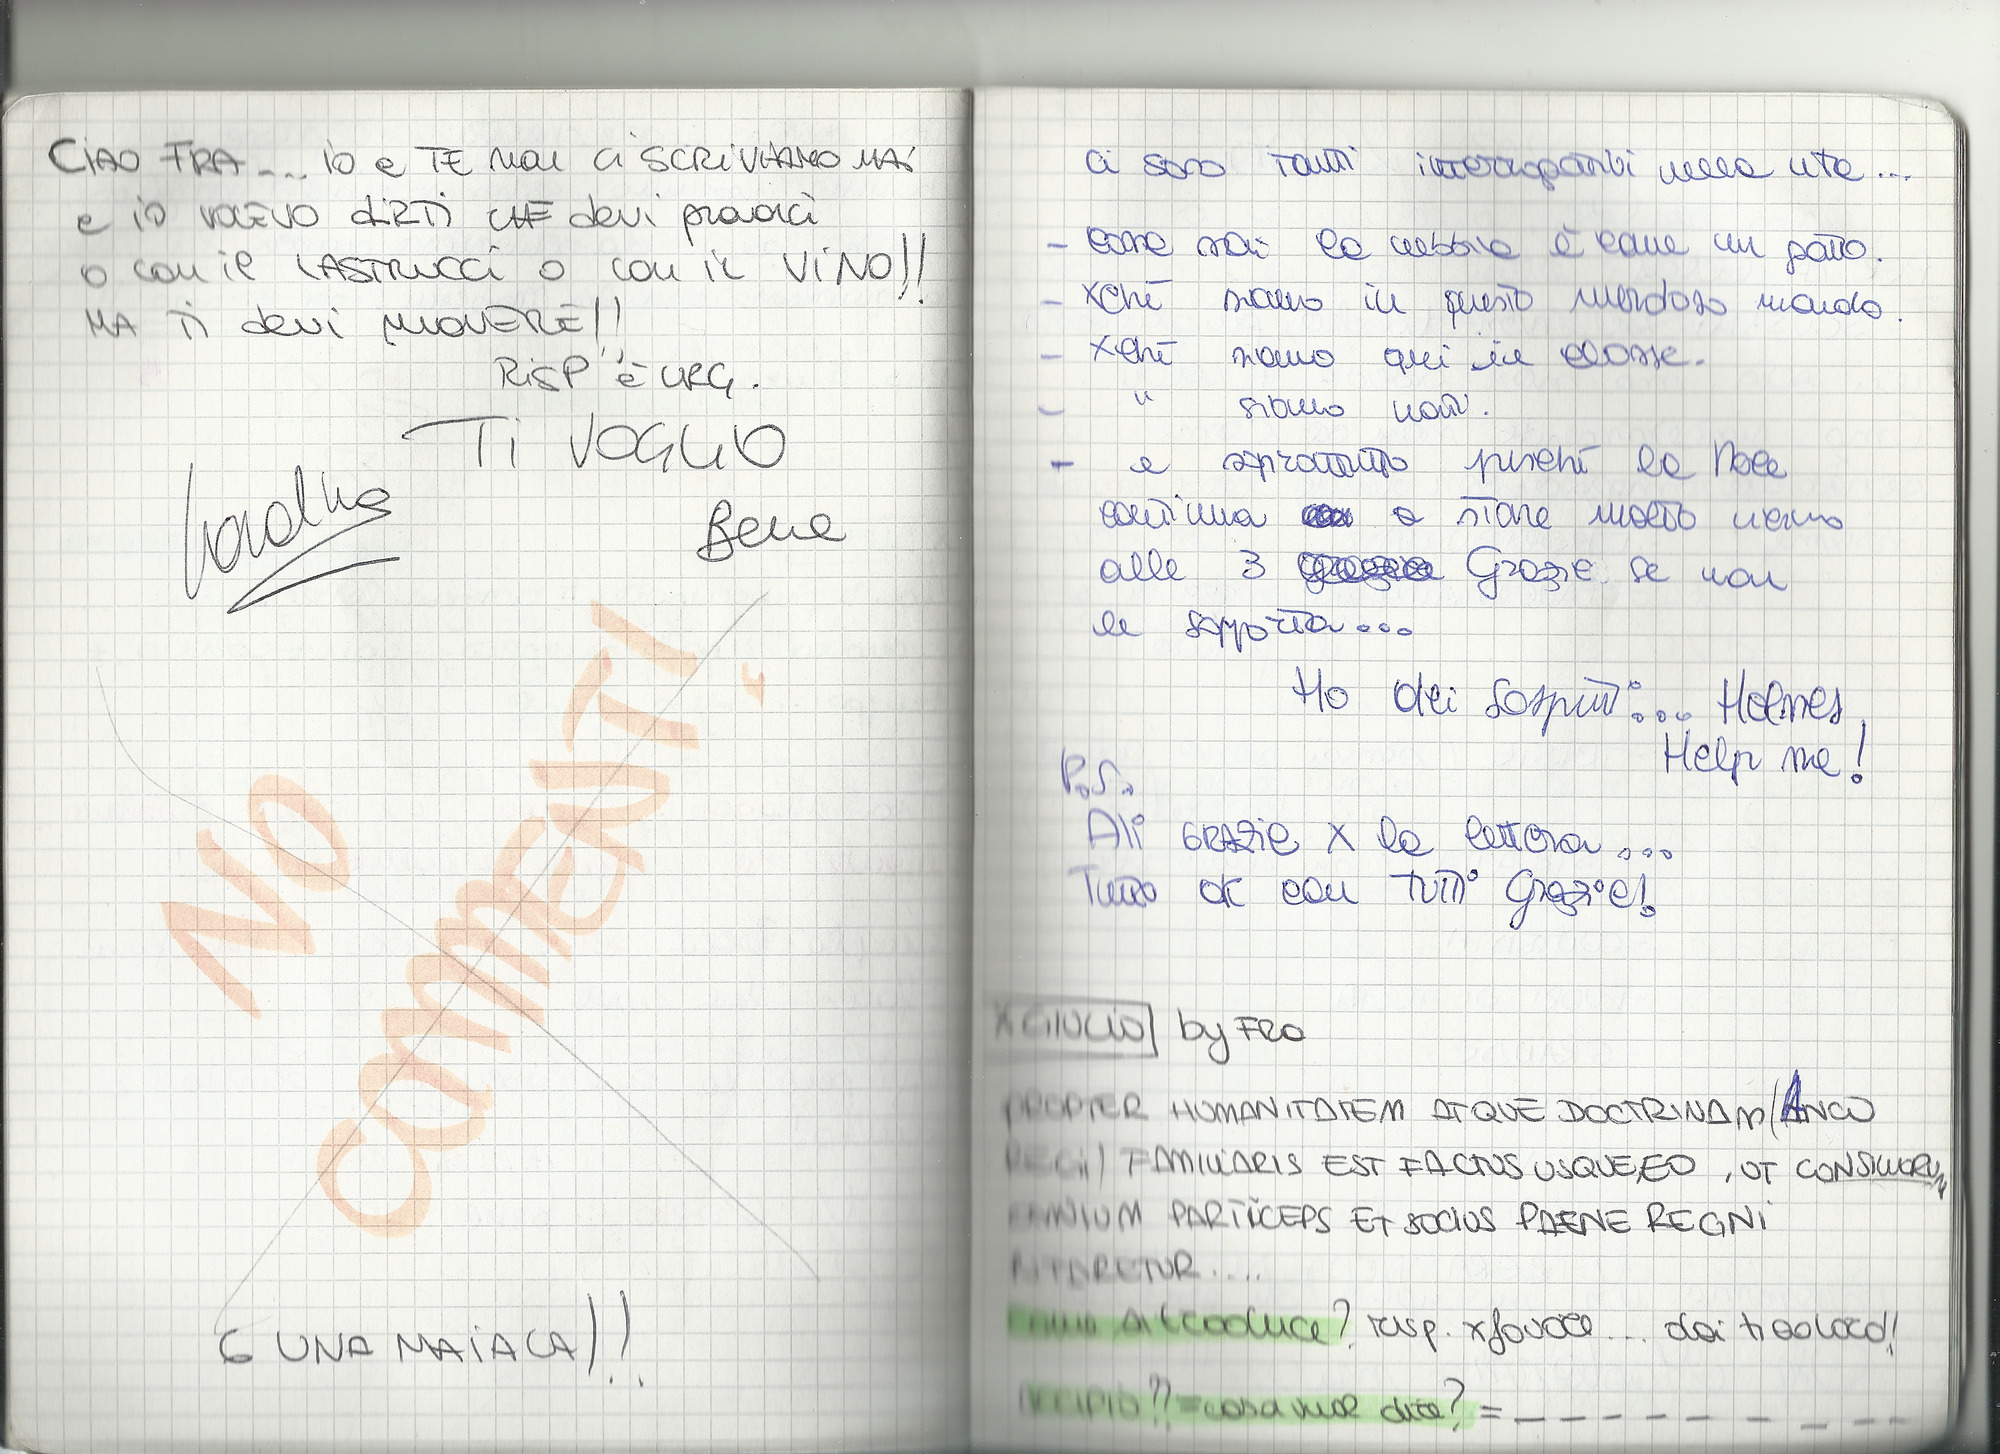 CIAO FRA.... io e TE non ci SCRIVIAMO MAI
e io VOLEVO DIRTI CHE devi provarci
o con il LASTRUCCI o con il VINO!!
MA TI devi MUOVERE!!
RISP è URG.
TI VOGLIO
Bene
NO
COMMENTI
6 UNA MAIALA!!
ci sono tanti interrogativi nella vita...
- come mai la nebbia è come un gatto.
- xchè siamo in questo merdoso mondo.
- xchè siamo qui in classe.
- " siamo nati.
- e soprattutto perchè la
continua a stare molto vicino
alle 3 Grazie se non
le sopporta...
Ho dei sospetti:... Holmes
Help me!
P.S.
Ali GRAZIE X la lettera...
Tutto ok con TUTTI Grazie!
X GIULIO by FRA
PROPTER HUMANITATEM ATQUE DOCTRINAM ANCO
REGI FAMILIARIS EST FACTUS USQUE EO, UT CONSILIORUM
OMNIUM PARTICEPS ET SOCIUS PAENE REGNI
PUTARETUR....
come si traduce? risp. xfavore... dai ti adoro!!
ACCIPIO?? = cosa vuol dire? = _ _ _ _ _ _ _ _ _